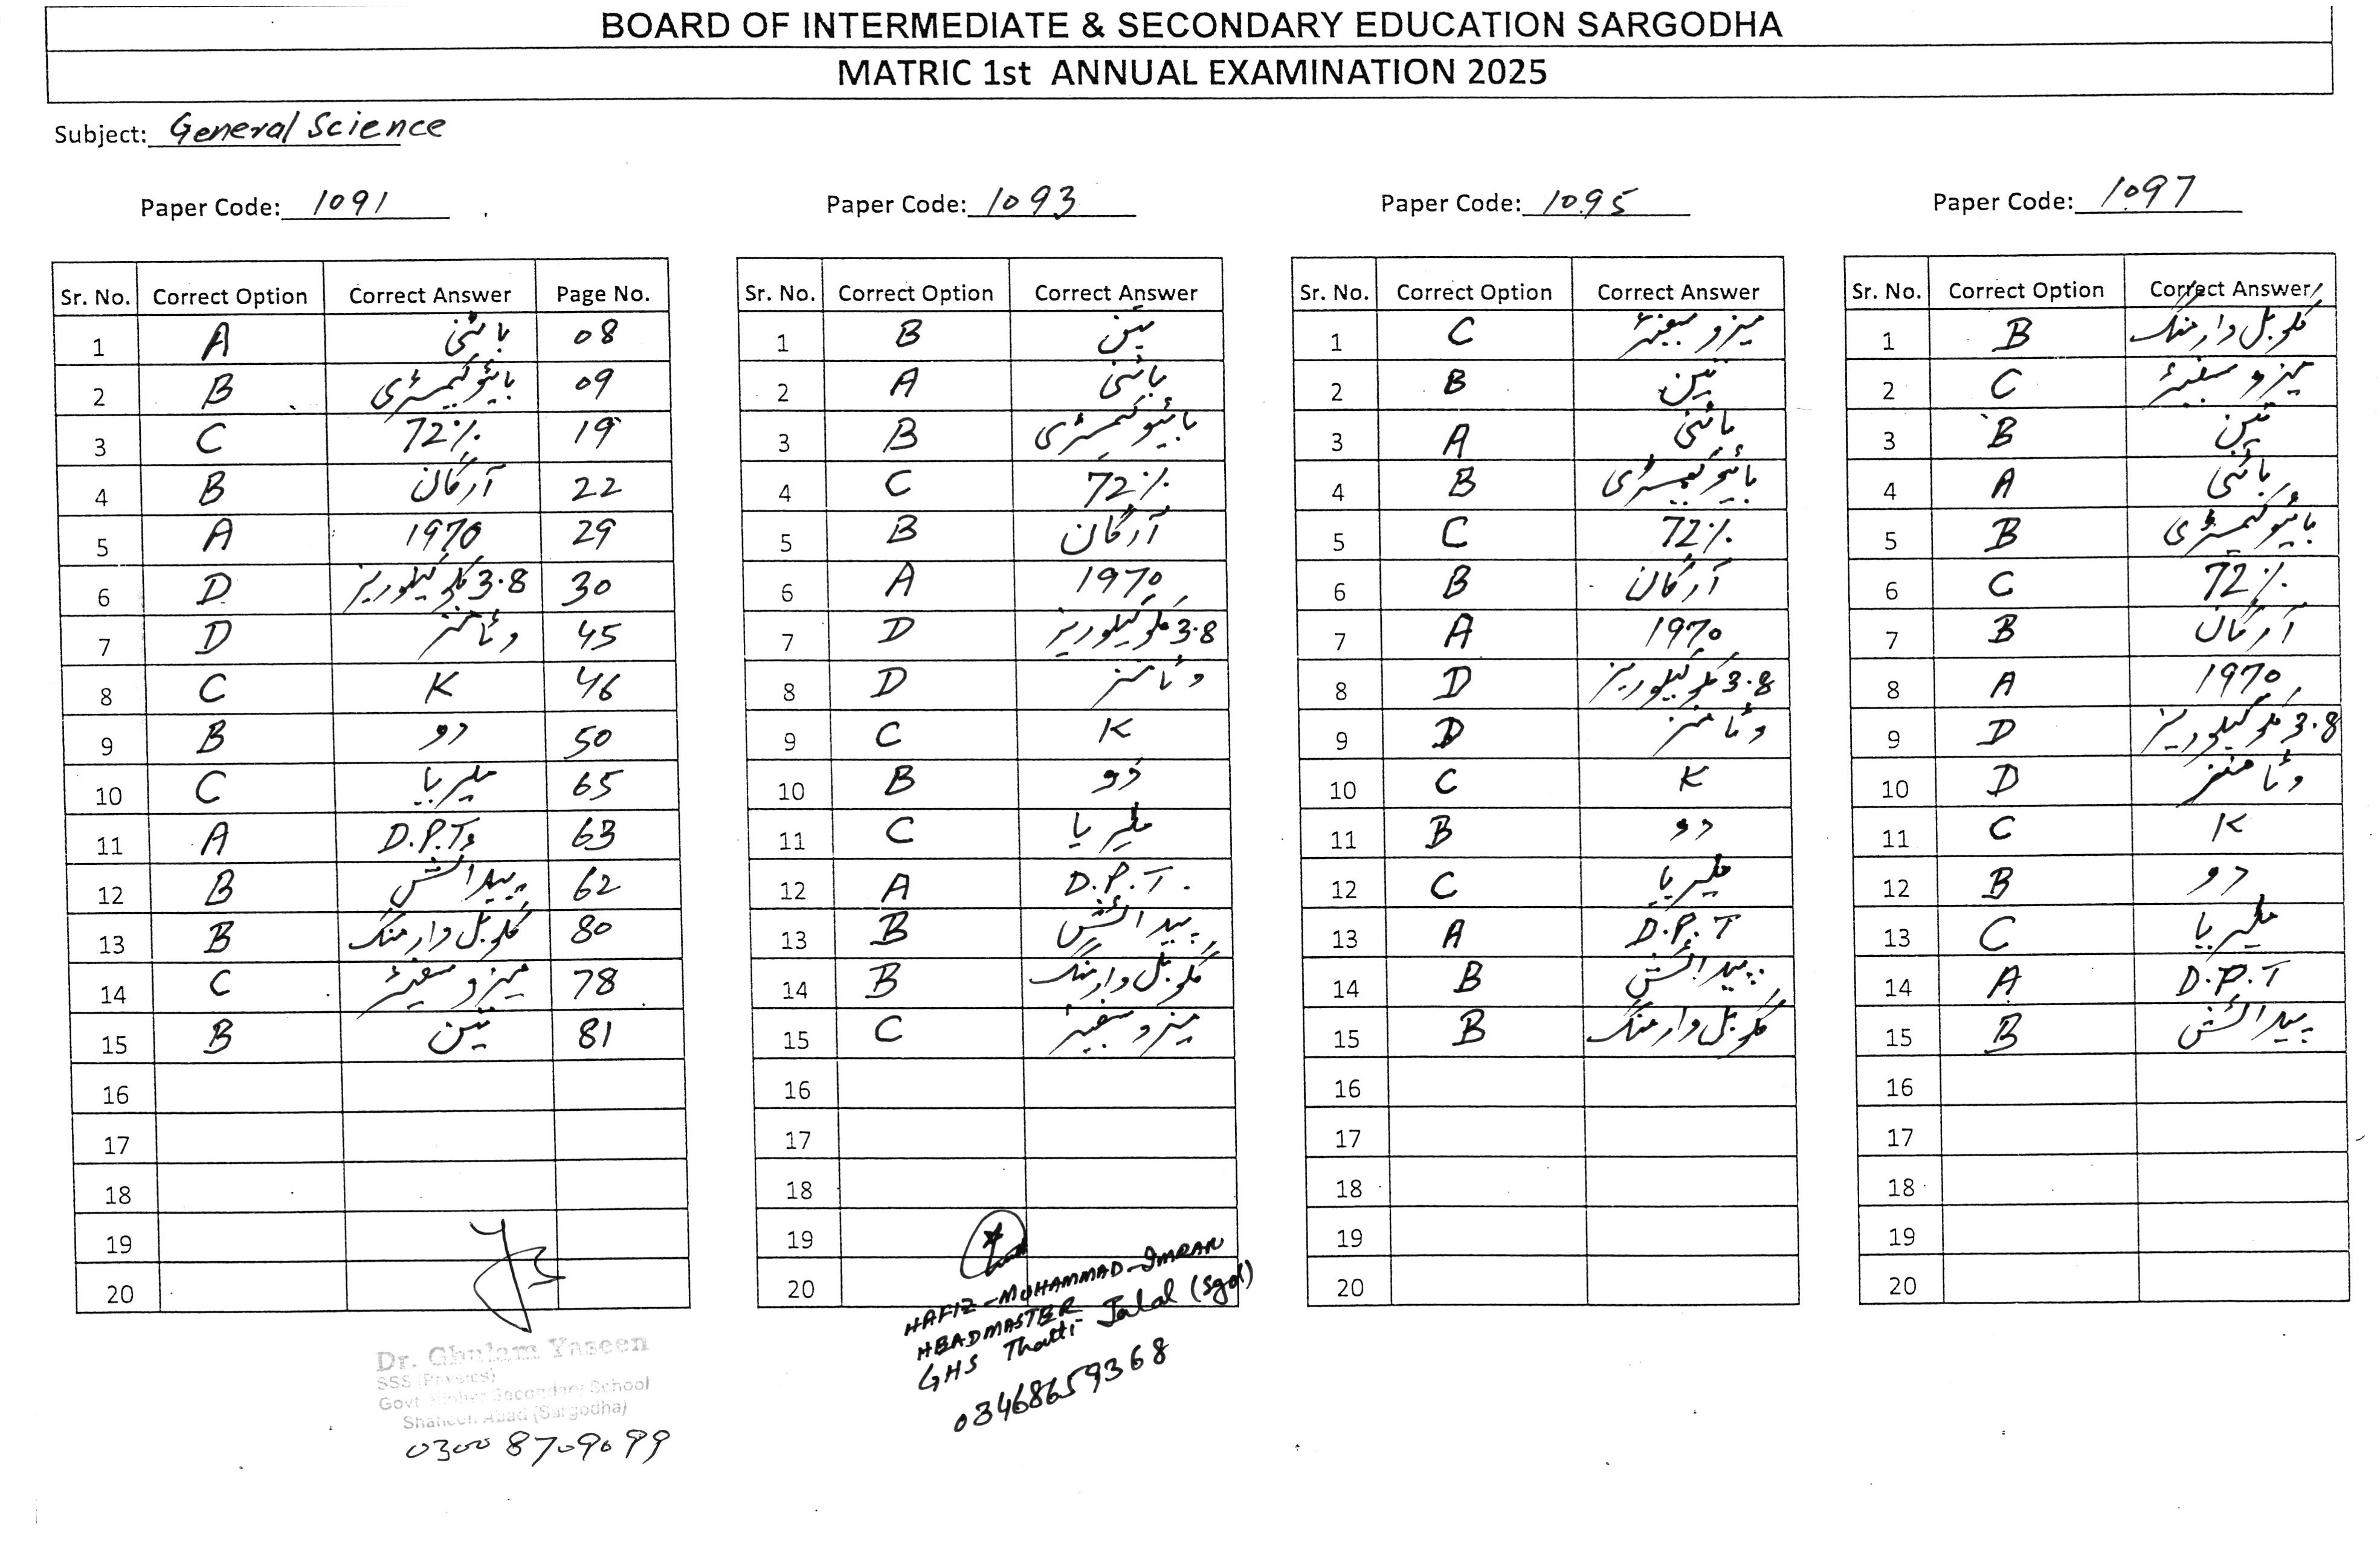 BOARD OF INTERMEDIATE & SECONDARY EDUCATION SARGODHA
MATRIC 1st ANNUAL EXAMINATION 2025
Subject: General Science
Paper Code: 1091
Sr. No. Correct Option Correct Answer Page No.
1 A باٹنی 08
2 B بائیوکیمسٹری 09
3 C 72% 19
4 B آرگان 22
5 A 1970 29
6 D 3.8 کلو کیلوریز 30
7 D وٹامنز 45
8 C K 46
9 B دو 50
10 C ملیریا 65
11 A D.P.T 63
12 B پیدائش 62
13 B گلوبل وارمنگ 80
14 C میزوسفیئر 78
15 B تین 81
16
17
18
19
20
Paper Code: 1093
Sr. No. Correct Option Correct Answer
1 B تین
2 A باٹنی
3 B بائیوکیمسٹری
4 C 72%
5 B آرگان
6 A 1970
7 D 3.8 کلو کیلوریز
8 D وٹامنز
9 C K
10 B دو
11 C ملیریا
12 A D.P.T.
13 B پیدائش
14 B گلوبل وارمنگ
15 C میزوسفیئر
16
17
18
19
20
Paper Code: 1095
Sr. No. Correct Option Correct Answer
1 C میزوسفیئر
2 B تین
3 A باٹنی
4 B بائیوکیمسٹری
5 C 72%
6 B آرگان
7 A 1970
8 D 3.8 کلو کیلوریز
9 D وٹامنز
10 C K
11 B دو
12 C ملیریا
13 A D.P.T
14 B پیدائش
15 B گلوبل وارمنگ
16
17
18
19
20
Paper Code: 1097
Sr. No. Correct Option Correct Answer
1 B گلوبل وارمنگ
2 C میزوسفیئر
3 B تین
4 A باٹنی
5 B بائیوکیمسٹری
6 C 72%
7 B آرگان
8 A 1970
9 D 3.8 کلو کیلوریز
10 D وٹامنز
11 C K
12 B دو
13 C ملیریا
14 A D.P.T
15 B پیدائش
16
17
18
19
20
Dr. Ghulam Yaseen
SSS (Physics)
Govt Higher Secondary School
Shaheen Abad (Sargodha)
0300 8709099
HAFIZ-MUHAMMAD-IMRAN
HEADMASTER
GHS Thatti Jalal (Sgd)
03468659368